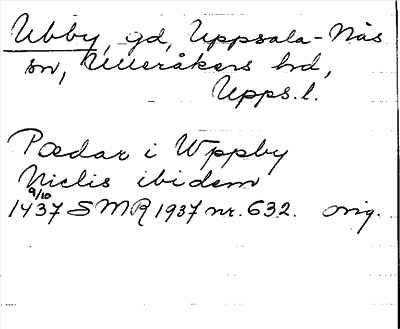 Ubby, gd, Uppsala-Näs
sn, Ulleråkers hd,
Upps. l.
Pædar i Wppby
Niclis ibidem
9/10
1437 SMR 1937 nr. 632. orig.